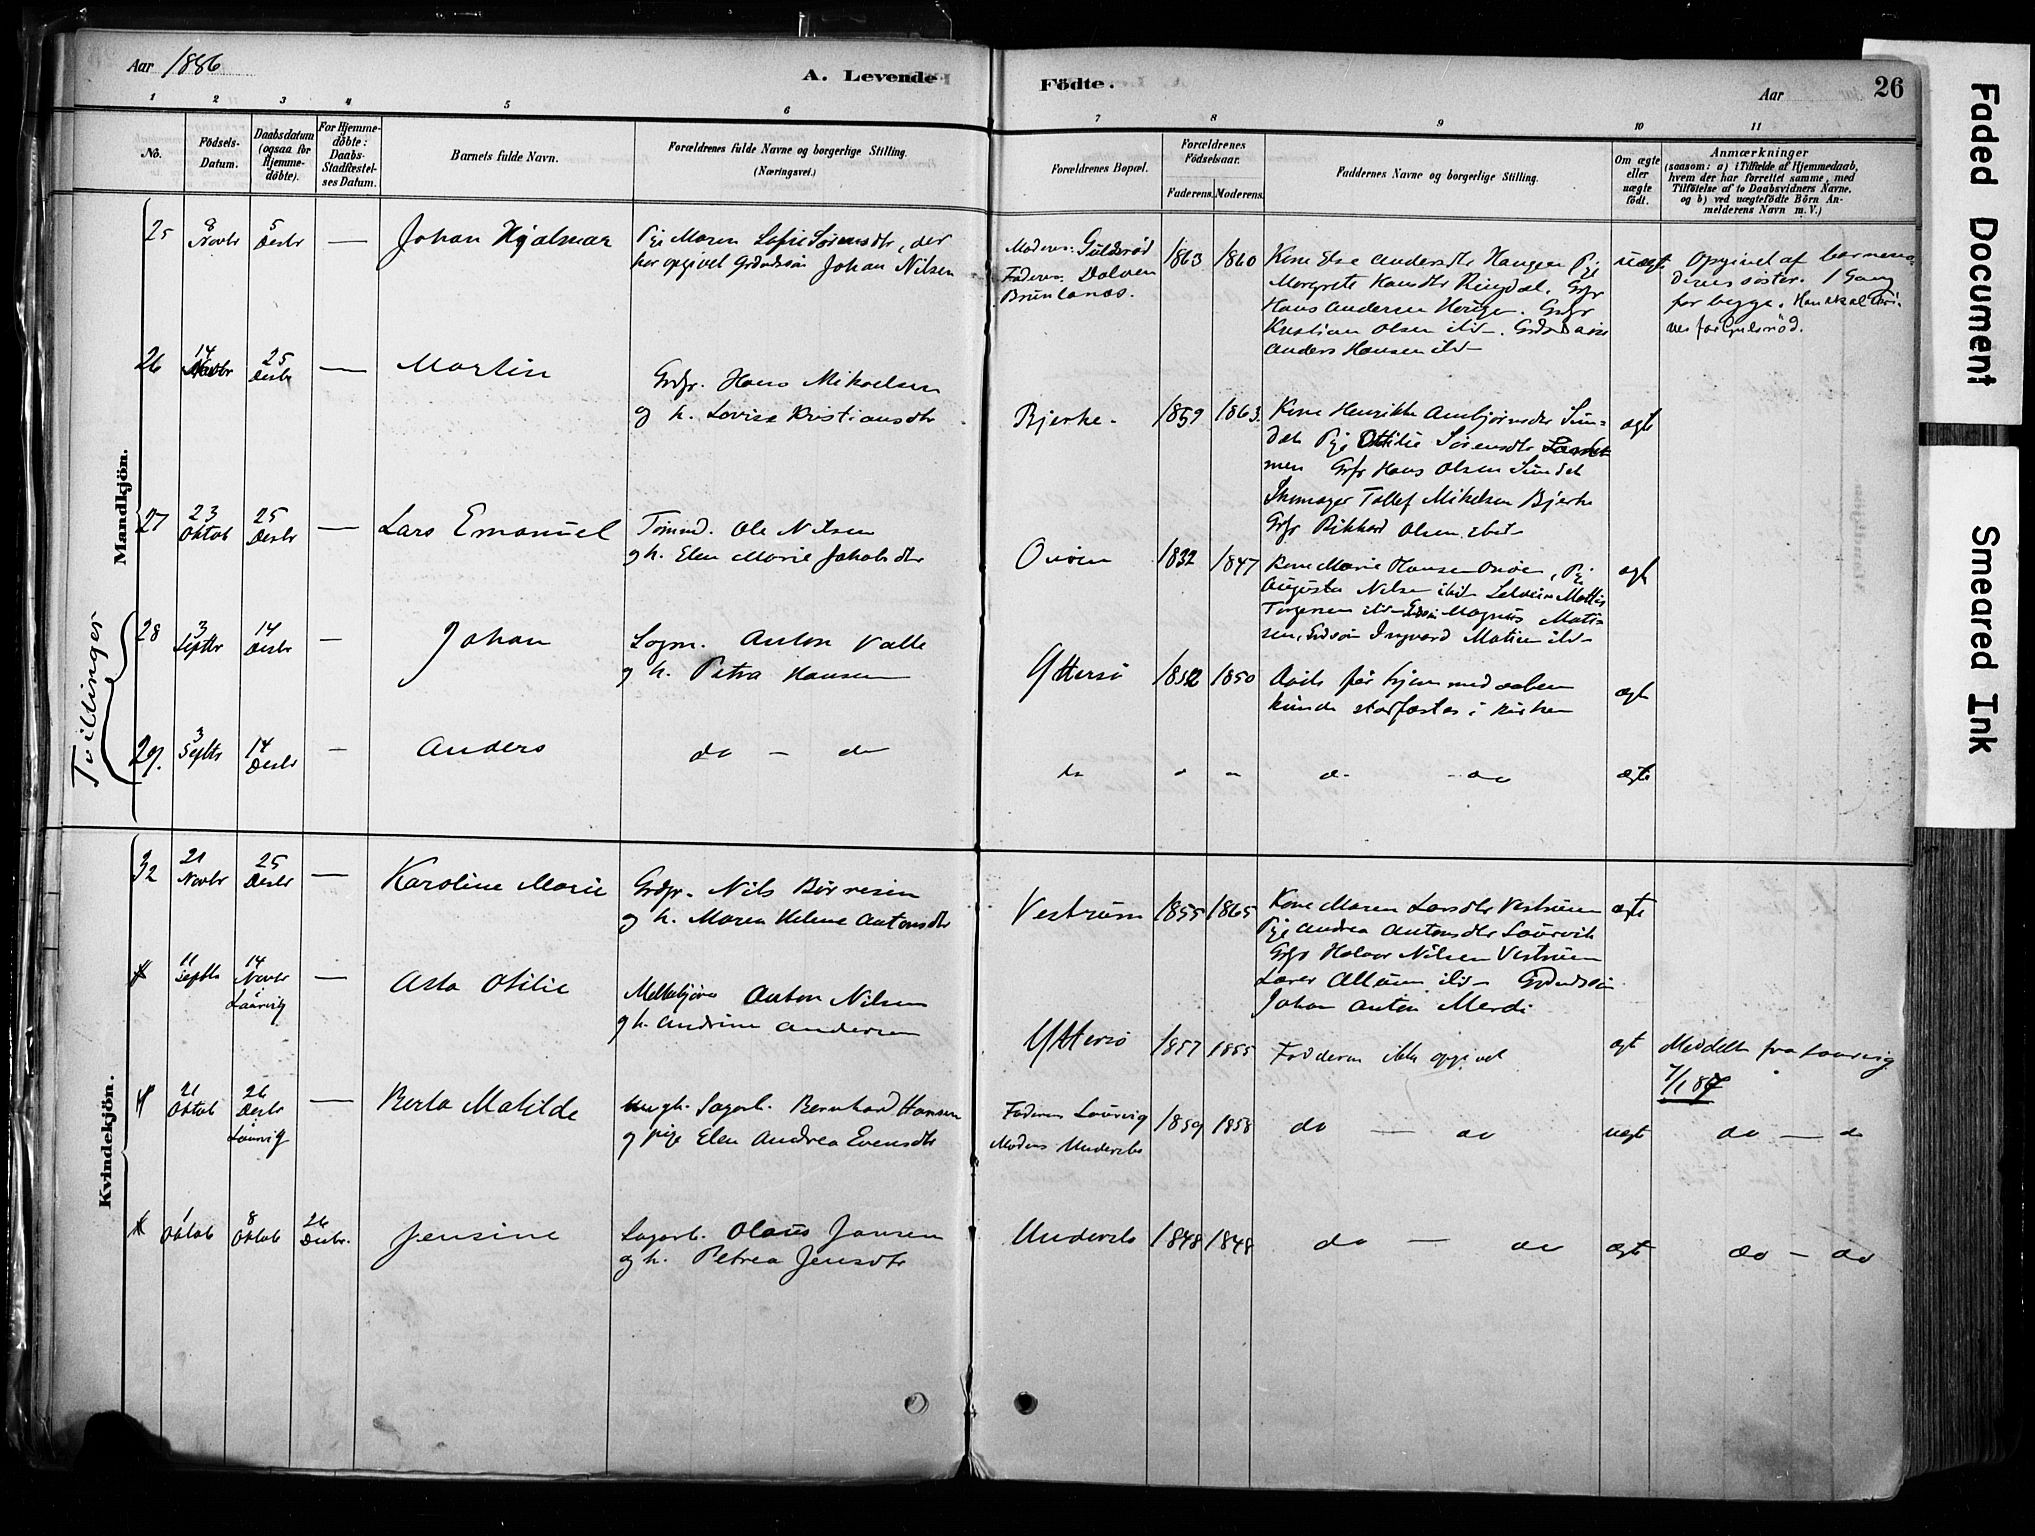 Aar 1886
A. Levende
Födte.
Aar
26
1 2 3 4 5 6 7 8 9 10 11
No.
Födsels-
Datum.
Daabsdatum
(ogsaa for
Hjemme-
döbte).
For Hjemme-
döbte:
Daabs-
Stadfæstel-
ses Datum.
Barnets fulde Navn.
Forældrenes fulde Navne og borgerlige Stilling.
(Næringsvei.)
Forældrenes Bopæl.
Forældrenes
Födselsaar.
Faderens. Moderens.
Faddernes Navne og borgerlige Stilling.
Om ægte
eller
uægte
födt.
Anmærkninger
(saasom: a) i Tilfælde af Hjemmedaab,
hvem der har forrettet samme, med
Tilföielse af to Daabsvidners Navne,
og b) ved uægtefödte Börn An-
melderens Navn m. V.)
Mandkjön.
25 8 Novbr 5 Desbr — Johan Hjalmar
Pige Maren Sofie Sørensdtr, der
har opgivet Grdmdssön Johan Nilsen
Moderen: Guldsröd
Faderen: Dolven
Brunlanes.
1863 1860
Kone Else Andersdtr Haugen Pige
Margrete Hansdtr Ringdal. Gpr
Hans Andersen Haugen. Gpr
Kristian Olsen ibd.
Anders Hansen ibd
uægte
Opgivet af barnemo-
derens søster. 1 Gang
for begge.
26 14 Novbr 25 Desbr — Martin
Grdpr. Hans Mikaelsen
og h. Lovise Kristiansdtr
Bjerke. 1859 1863.
Kone Henrikke Ambjørnsdtr Sun-
det Pige Ottilie Sörensdtr
men Gpr Hans Olsen Sundet
Skomager Tollef Mikelsen Bjerke
Gpr Rikhard Olsen ibd
ægte
27 23 Oktob 25 Desbr — Lars Emanuel
Tömmd. Ole Nilsen
og h. Elen Marie Jakobsdtr
1832 1847
Kone Marie Hansen Pige
Augusta Nilsen ibid Mathis
Torgersen ibd Magnus Mati-
sen, Ingvard Matisen ibd
ægt
Tvillinger
28 3 Septbr 14 Desbr — Johan
Anton Valle
og h. Petra Hansen
Yttersö 1852 1850
kunde starfæstes i kirken
ægt
29. 3 Septbr 14 Desbr — Anders
do — do
do " " do — do ægte
Kvindekjön.
32 21 Novbr 25 Desbr — Karoline Marie
Grdpr. Nils Börresen
og h. Maren Helene Antonsdtr
Vestrum 1855 1865
Kone Maren Larsdtr Vestrum
Pige Andrea Antonsdtr Laurvik
Gpr Halvor Nilsen Vestrum
Lærer Allum ibd —
Johan Anton Merdi
ægte
11 Septbr 14 Novbr Laurvig — Asta Otilie
Anton Nilsen
og h. Andrine Andersen
Yttersö 1857 1855 Fadderne ikke opgivet ægt
Meddelt fra Laurvig
7/1 87
21 Oktob 26 Desbr Laurvig — Berta Matilde
ungk. Sagarb. Bernhard Hansen
og pige Elen Andrea Evensdtr
Faderen Laurvig
Moderen Undersbo
1859 1858 do — do uægt do — do
1 Oktob 8 Oktob 26 Desbr. Jensine
Sagarb. Olaus Jansen
og h. Petrea Jensdtr
Undersbo 1848 1848 do — do ægt do — do
Faded Document
Smeared Ink